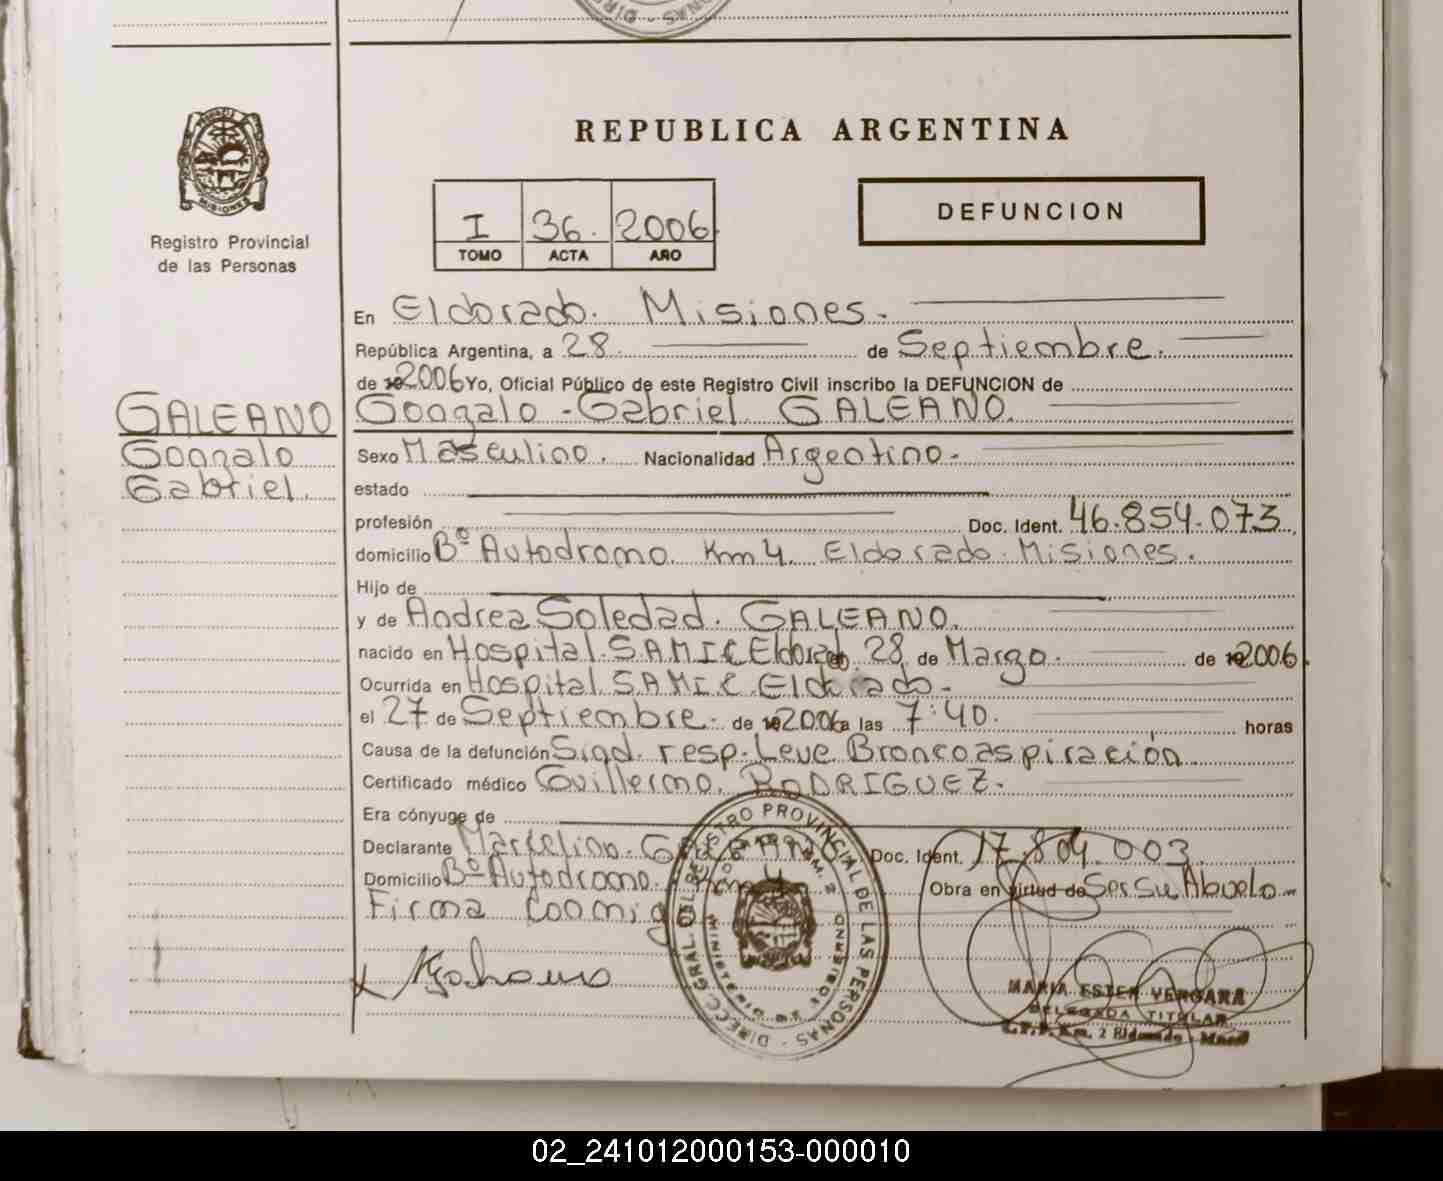 REPUBLICA ARGENTINA
MISIONES
Registro Provincial
de las Personas
I 36. 2006
TOMO ACTA AÑO
DEFUNCION
En Eldorado. Misiones.
República Argentina, a 28. de Septiembre.
de 192006 Yo, Oficial Público de este Registro Civil inscribo la DEFUNCION de
GALEANO
Gonzalo
Gabriel.
Gonzalo - Gabriel GALEANO.
Sexo Masculino. Nacionalidad Argentino.
estado
profesión Doc. Ident. 46.854.073.
domicilio Bº Autodromo. Km 4. Eldorado. Misiones.
Hijo de
y de Andrea Soledad. GALEANO.
nacido en Hospital SAMIC Eldorado 28 de Marzo. de 192006.
Ocurrida en Hospital SAMIC Eldorado.
el 27 de Septiembre. de 192006 a las 7:40. horas
Causa de la defunción Sind. resp. Leve Broncoaspiración
Certificado médico Guillermo. RODRIGUEZ.
Era cónyuge de
Declarante Marcelino. Doc. Ident. 17.804.003.
Domicilio Bº Autodromo. Obra en virtud de Ser Su Abuelo
Firma Conmigo
DIREC. GRAL. DEL REGISTRO PROVINCIAL DE LAS PERSONAS
MINISTERIO DE GOBIERNO
MARIA ESTER VERGARA
DELEGADA TITULAR
Km. 2 Eldorado - Mnes
02_241012000153-000010